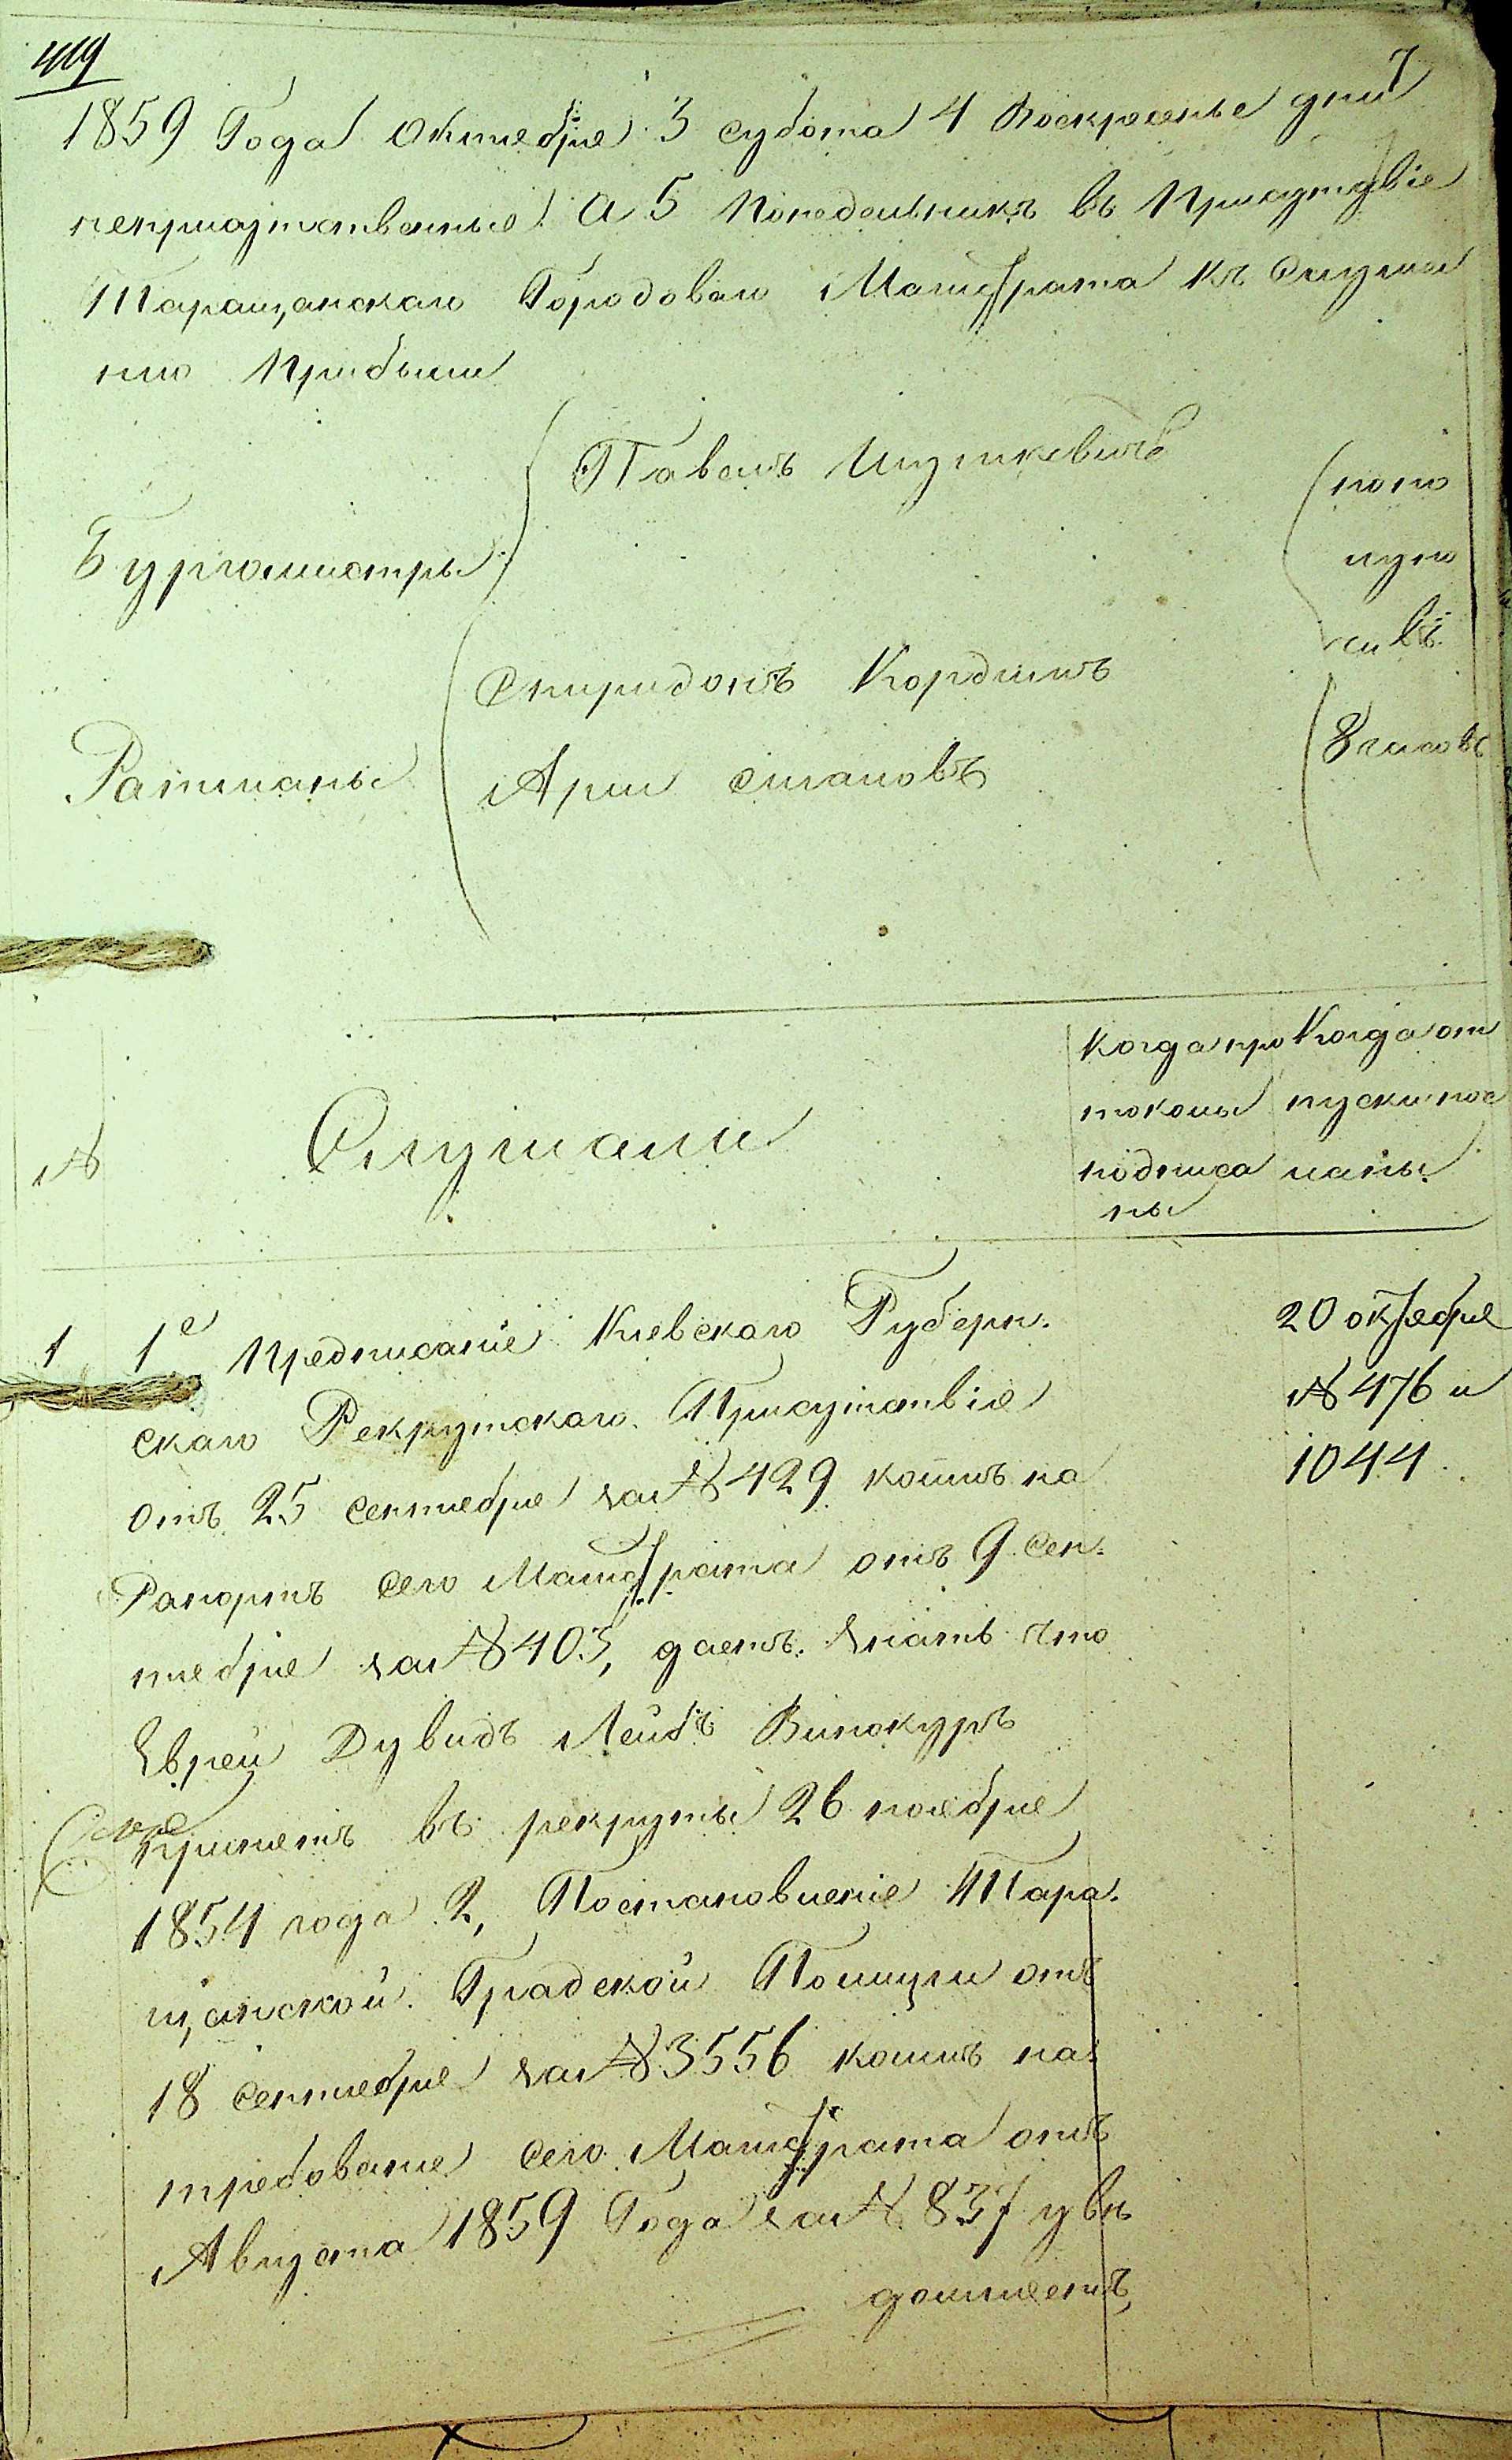 419
7
1859 Года Октебря 3 субота 4 Воскресенье дни
неприсутственные А 5 Понедельникъ въ Присутствіе
Таращанскаго Городоваго Магистрата къ Слуша
нію Прибыли
Бургомистры
Павелъ
по по
луно
чи въ
Ратманы
Спиридонъ Кордишъ
8 часовъ
№
Слушали
Когда про
токолы
подписа
ны
Когда от
пуски пос
ланы
1 1е Предписаніе Кіевскаго Губерн.
скаго Рекрутскаго Присутствія
отъ 25 сентебря за № 429 коимъ на
Рапортъ сего Магистрата отъ 9 Сен.
тебря за № 403, даетъ знать что
Еврей Дувидъ Лейбъ Винокуръ
принетъ въ рекруты 26 ноебря
1854 года 2, Постановленіе Тара.
щанской Градской Полиции отъ
18 сентебря за № 3556 коимъ на
требование сего Магистрата отъ
Августа 1859 Года за № 837 увѣ
домляетъ,
20 октебря
№ 476 и
1044.